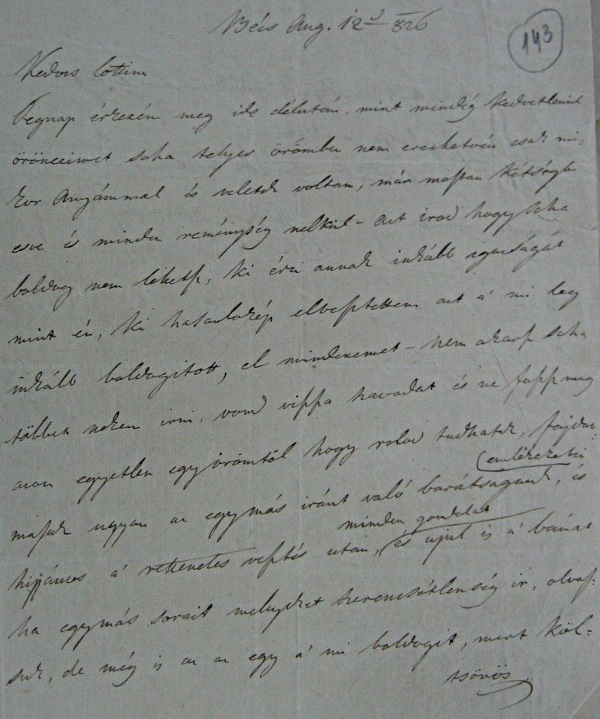 Bécs Aug. 12d 826
143
Kedves Lottim
Tegnap érkezém meg ide délután, mint mindég kedvetlenül
örömeimet soha telyes örömben nem érezhetvén csak mi,
kor Anyámmal és veletek voltam, már mostan kétségbe
esve és minden reménység nélkül – Azt irod hogy soha
boldog nem lehetsz, ki érzi annak inkább igazságát
mint én, ki hasonlókép elvesztettem azt a' mi leg
inkább boldogitott, el mindenemet – nem akarsz soha
többet nekem irni, vond vissza szavadat és ne fossz meg
azon egyetlen egy örömtől hogy rolad tudhatok, fájdal
masak ugyan az egymás iránt való barátságunk, és
emlékezeti
minden gondolat
a' rettenetes vesztés utan, és ujul is a' bánat
ha egymás sorait melyeket szerencsétlenség ir, olvas-
suk, de még is az az egy a' mi boldogit, mert köl-
tsönös